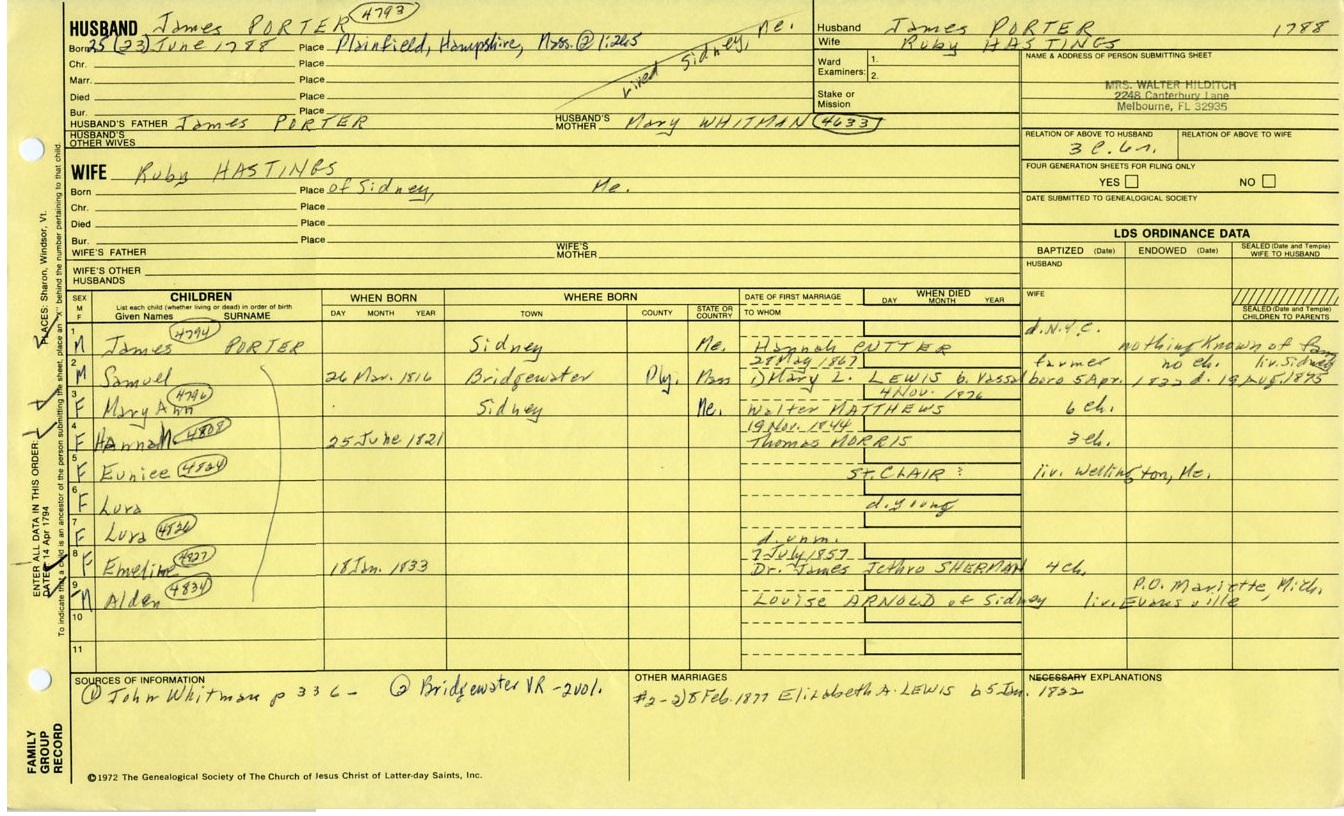 HUSBAND James PORTER 4793
Born 25 (23) June 1788 Place Plainfield, Hampshire, Mass. @ 1:265
Chr. Place
Marr. Place
Died Place
Bur. Place
Lived Sidney, Me.
HUSBAND'S FATHER James PORTER HUSBAND'S MOTHER Mary WHITMAN 4633
HUSBAND'S OTHER WIVES
WIFE Ruby HASTINGS
Born Place of Sidney, Me.
Chr. Place
Died Place
Bur. Place
WIFE'S FATHER WIFE'S MOTHER
WIFE'S OTHER HUSBANDS
Husband James PORTER 1788
Wife Ruby HASTINGS
Ward Examiners: 1. 2.
Stake or Mission
NAME & ADDRESS OF PERSON SUBMITTING SHEET
MRS. WALTER HILDITCH
2248 Canterbury Lane
Melbourne, FL 32935
RELATION OF ABOVE TO HUSBAND RELATION OF ABOVE TO WIFE
3 c. 6r.
FOUR GENERATION SHEETS FOR FILING ONLY
YES NO
DATE SUBMITTED TO GENEALOGICAL SOCIETY
LDS ORDINANCE DATA
BAPTIZED (Date) ENDOWED (Date) SEALED (Date and Temple) WIFE TO HUSBAND
HUSBAND
WIFE
SEALED (Date and Temple) CHILDREN TO PARENTS
SEX M F CHILDREN WHEN BORN WHERE BORN DATE OF FIRST MARRIAGE WHEN DIED
List each child (whether living or dead) in order of birth
Given Names SURNAME DAY MONTH YEAR TOWN COUNTY STATE OR COUNTRY TO WHOM DAY MONTH YEAR
1 M James 4794 PORTER Sidney Me. Hannah CUTTER d. N.Y.C. nothing known of fam
2 M Samuel 26 Mar. 1816 Bridgewater Ply. Mass 28 May 1867 1) Mary L. LEWIS b. Vassalboro 5 Apr. 1822 d. 19 Aug. 1875 farmer no ch. liv. Sidney
3 F Mary Ann 4796 Sidney Me. 4 Nov. 1876 Walter MATTHEWS 6 ch.
4 F Hannah 4808 25 June 1821 19 Nov. 1844 Thomas MORRIS 3 ch.
5 F Eunice 4824 ST. CLAIR ? liv. Wellington, Me.
6 F Lura d. young
7 F Lura 4826 d. unm.
8 F Emeline 4827 18 Jan. 1833 7 July 1857 Dr. James Jethro SHERMAN 4 ch.
9 M Alden 4834 Louise ARNOLD of Sidney liv. Evansville P.O. Mariette, Mich.
10
11
SOURCES OF INFORMATION
① John Whitman p 336 - ② Bridgewater VR - 2 vol.
OTHER MARRIAGES
#2 - 2) 8 Feb. 1877 Elizabeth A. LEWIS b 5 Jan. 1822
NECESSARY EXPLANATIONS
©1972 The Genealogical Society of The Church of Jesus Christ of Latter-day Saints, Inc.
FAMILY GROUP RECORD
ENTER ALL DATA IN THIS ORDER:
DATES: 14 Apr 1794
PLACES: Sharon, Windsor, Vt.
To indicate that a child is an ancestor of the person submitting the sheet, place an "X" behind the number pertaining to that child.